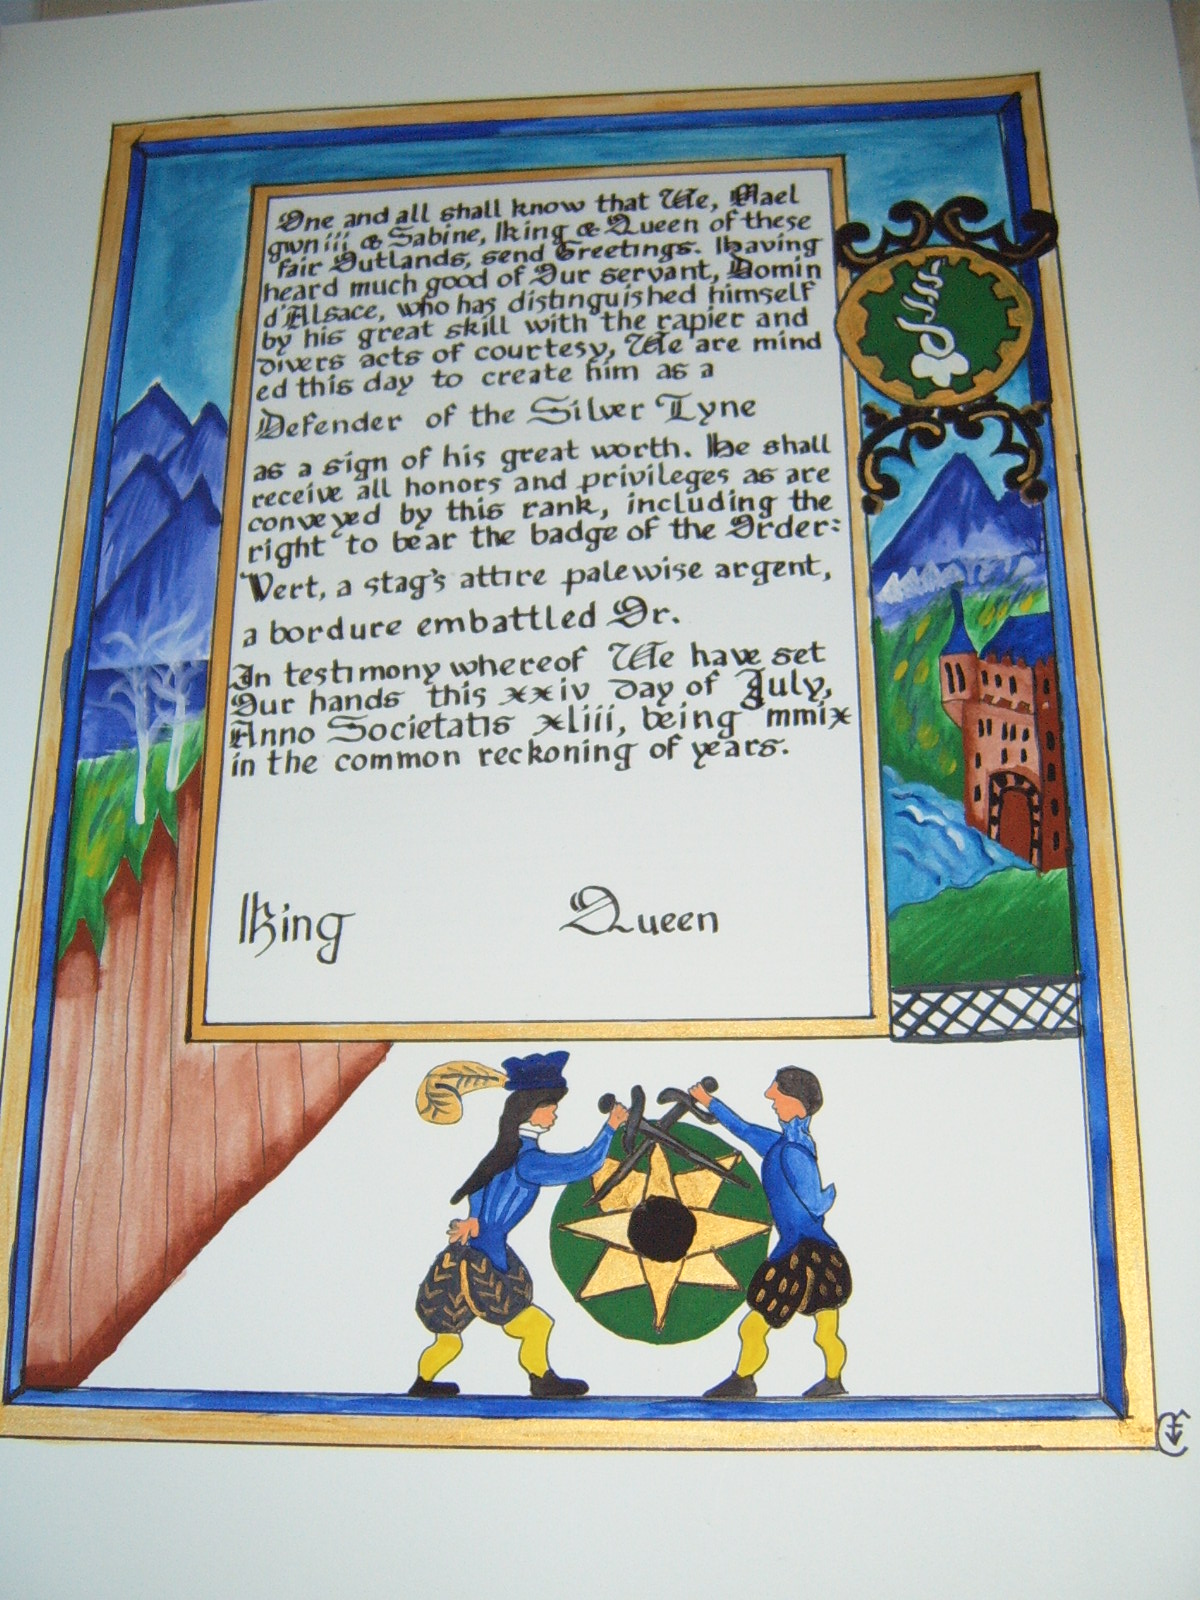 One and all shall know that We, Mael
gwn iii & Sabine, King & Queen of these
fair Outlands, send Greetings. Having
heard much good of Our servant, Domin
d'Alsace, who has distinguished himself
by his great skill with the rapier and
divers acts of courtesy, We are mind
ed this day to create him as a
Defender of the Silver Tyne
as a sign of his great worth. He shall
receive all honors and privileges as are
conveyed by this rank, including the
right to bear the badge of the Order:
Vert, a stag's attire palewise argent,
a bordure embattled Or.
In testimony whereof We have set
Our hands this xxiv day of July,
Anno Societatis xliii, being mmix
in the common reckoning of years.
King Queen